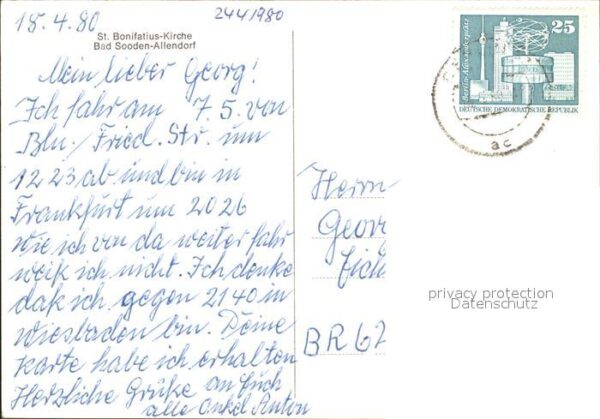 18.4.80
2441980
St. Bonifatius-Kirche
Bad Sooden-Allendorf
Mein lieber Georg!
Ich fahr am 7.5. von
Bln./Fried. Str. um
1223 ab und bin in
Frankfurt um 2026
Wie ich von da weiter fahr
weiß ich nicht. Ich denke
daß ich gegen 2140 in
Wiesbaden bin. Deine
Karte habe ich erhalten
Herzliche Grüße an Euch
alle Onkel Anton
25
Berlin-Alexanderplatz
DEUTSCHE DEMOKRATISCHE REPUBLIK
ac
Herrn
Georg
BR 62
privacy protection
Datenschutz